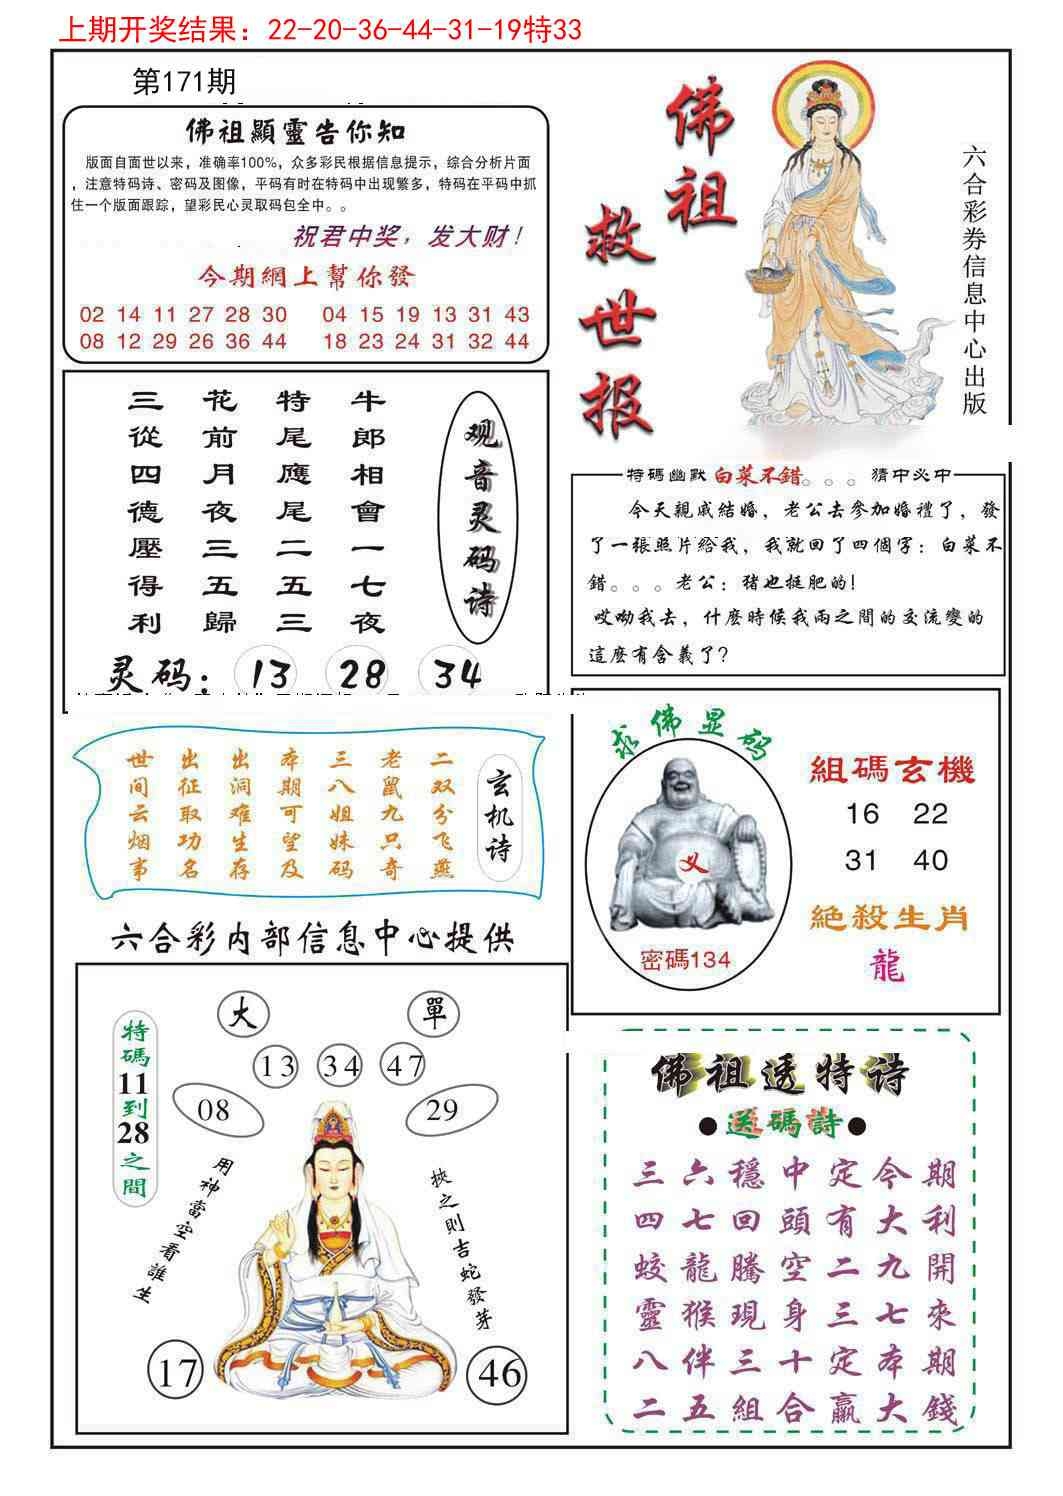 上期开奖结果：22-20-36-44-31-19特33
第171期
佛祖顯靈告你知
版面自面世以来，准确率100%，众多彩民根据信息提示，综合分析片面
，注意特码诗、密码及图像，平码有时在特码中出现繁多，特码在平码中抓
住一个版面跟踪，望彩民心灵取码包全中。。
祝君中奖，发大财！
今期網上幫你發
02 14 11 27 28 30 04 15 19 13 31 43
08 12 29 26 36 44 18 23 24 31 32 44
佛祖
救世报
六合彩券信息中心出版
观音灵码诗
牛郎相會一七夜
特尾應尾二五三
花前月夜三五歸
三從四德壓得利
灵码：13 28 34
特碼幽默 白菜不错。。。猜中必中
今天親戚結婚，老公去參加婚禮了，發
了一張照片給我，我就回了四個字：白菜不
錯。。。老公：猪也挺肥的!
哎呦我去，什麽時候我兩之間的交流變的
這麽有含義了?
玄机诗
二双分飞燕
老鼠九只奇
三八姐妹码
本期可望及
出洞难生存
出征取功名
世间云烟事
求佛显码
义
密碼134
組碼玄機
16 22
31 40
絕殺生肖
龍
六合彩内部信息中心提供
大 單
13 34 47
08 29
特碼11到28之間
用神當空看誰生
挾之則吉蛇發芽
17 46
佛祖透特诗
●送碼詩●
三六穩中定今期
四七回頭有大利
蛟龍騰空二九開
靈猴現身三七來
八伴三十定本期
二五組合贏大錢